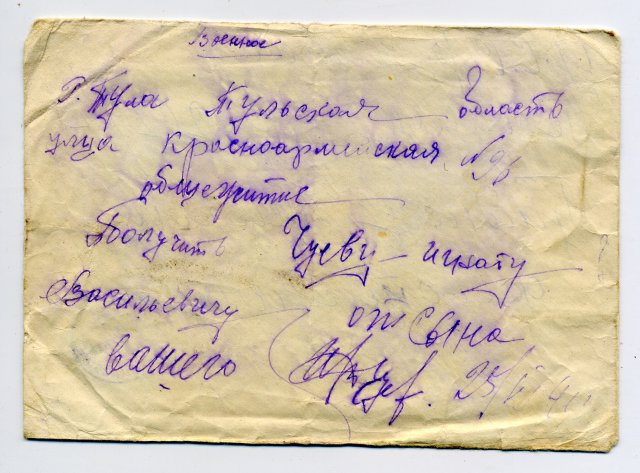 Военное
г. Тула Тульская область
улица красноармейская
общежитие
Получить Чуеву игнату
Васильевичу от сына
вашего